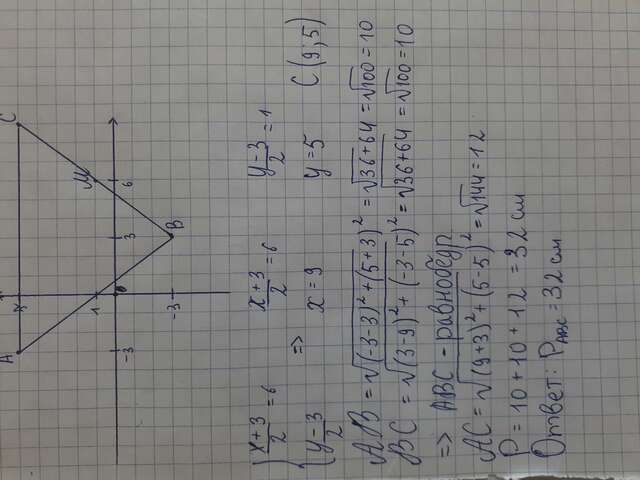 A
C
M
6
3
B
1
-3
-3
{ (x+3)/2 = 6    (x+3)/2 = 6    (y-3)/2 = 1
{ (y-3)/2    =>    x = 9    y = 5    C(9;5)
AB = √((-3-3)²+(5+3)²) = √(36+64) = √100 = 10
BC = √((3-9)²+(-3-5)²) = √(36+64) = √100 = 10
=> ABC - равнобедр.
AC = √((9+3)²+(5-5)²) = √144 = 12
P = 10+10+12 = 32 см
Ответ: P_ABC = 32 см